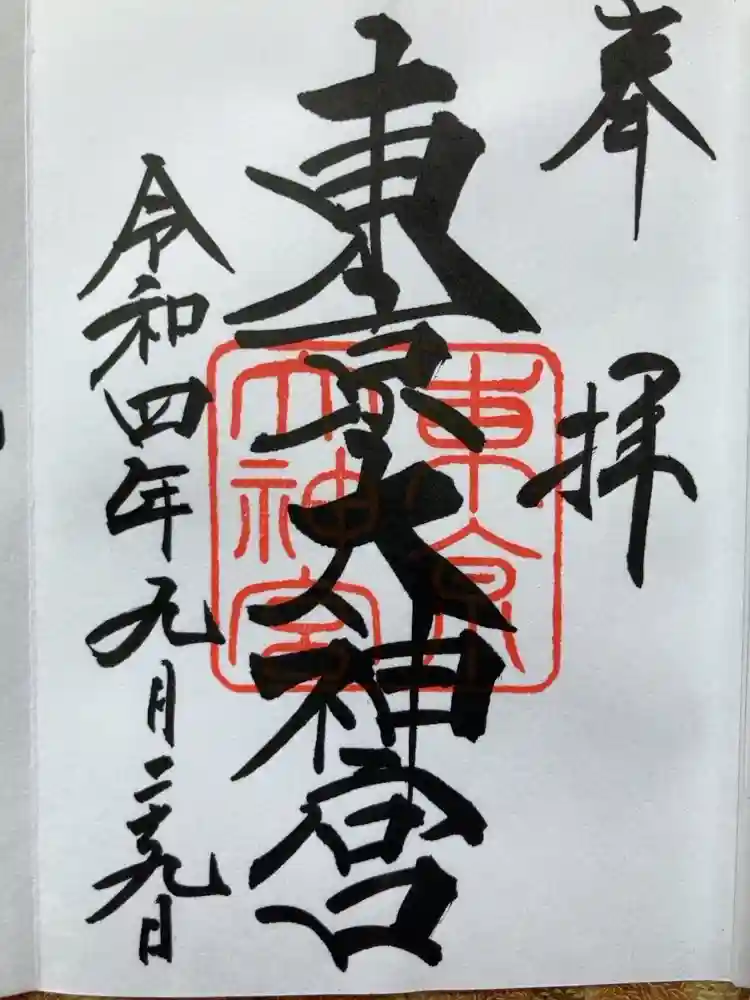 奉拝
東京大神宮
東京
大神宮
令和四年九月二十九日